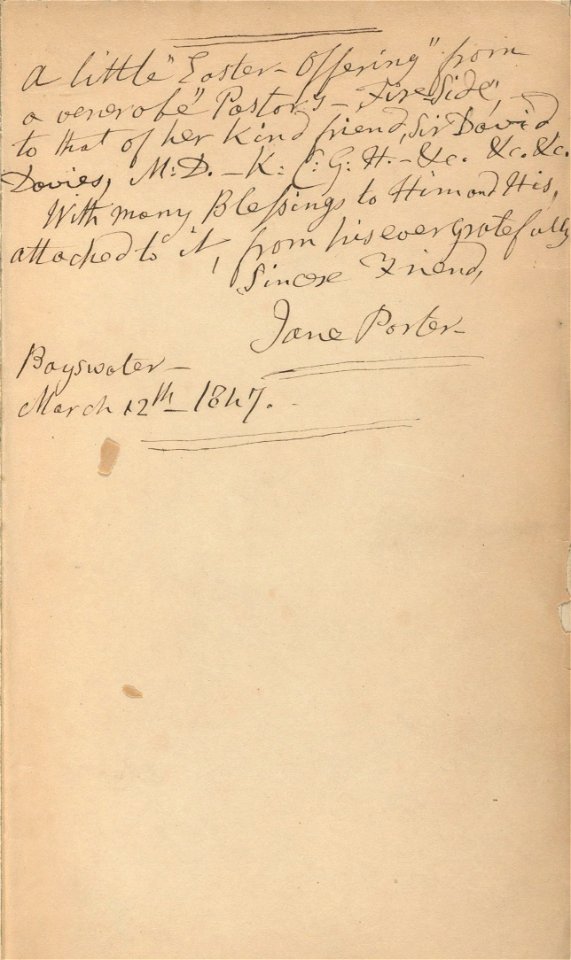 A little "Easter-Offering" from
a venerable "Pastor's-Fire Side,"
to that of her kind friend, Sir David
Davies, M:D.-K:C:G:H.-&c. &c. &c.
With many Blessings to Him and His,
attached to it, from his ever gratefully
Sincere Friend,
Jane Porter-
Bayswater-
March 12th-1847.